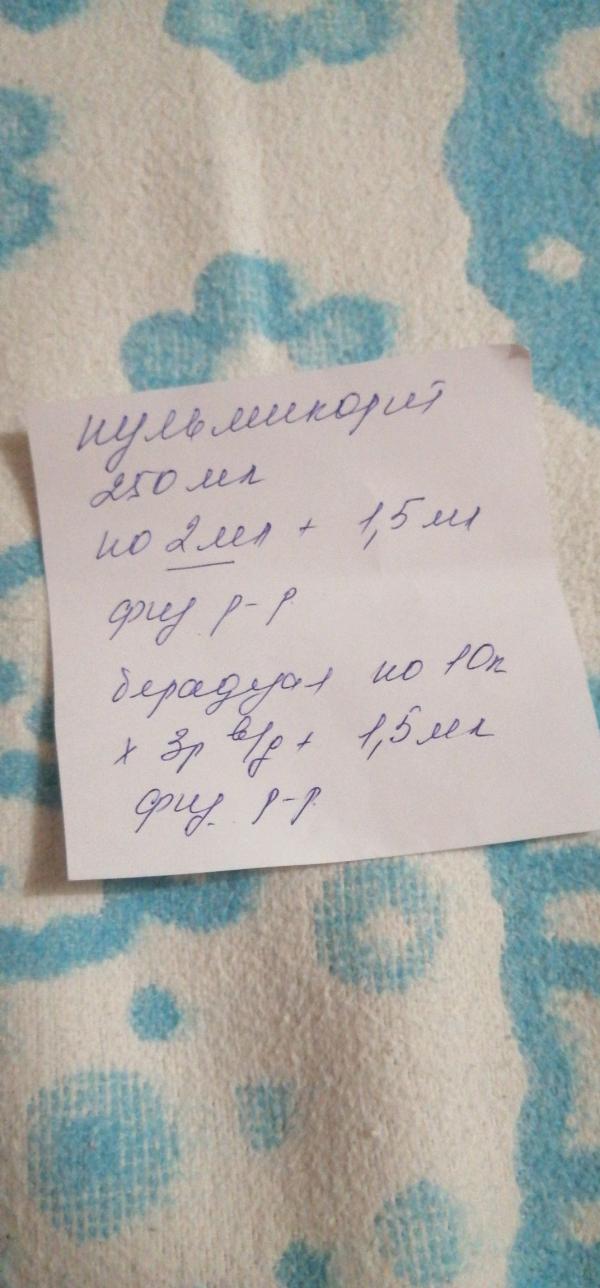 пульмикорт
250 мл
по 2мл + 1,5 мл
физ р-р
берадуал по 10к
х 3р в/д + 1,5 мл
физ. р-р